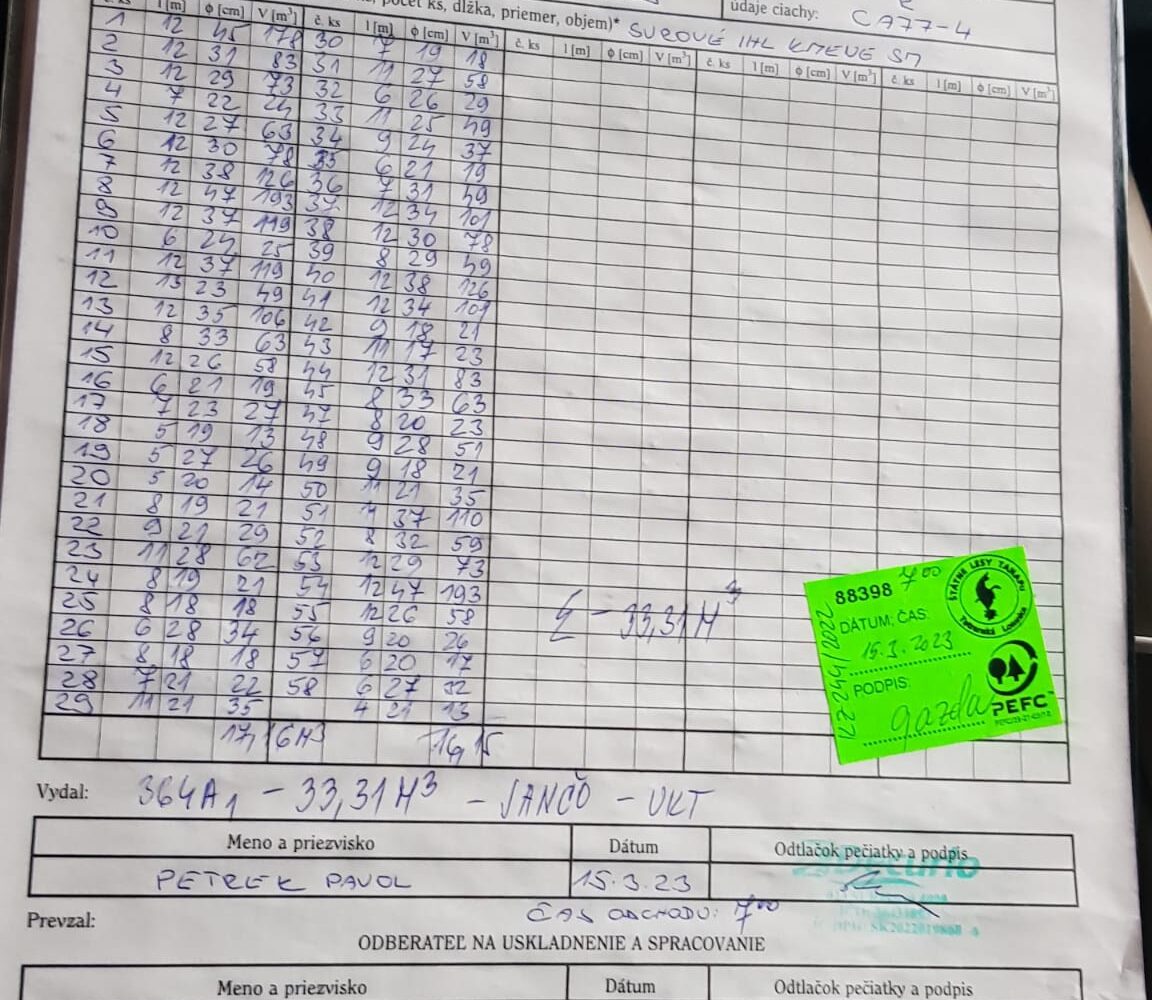 údaje ciachy: CA77-4
počet ks, dĺžka, priemer, objem)* SUROVÉ IHL KMEVE SM
č. ks l [m] ϕ [cm] V [m³] č. ks l [m] ϕ [cm] V [m³] č. ks l [m] ϕ [cm] V [m³] č. ks l [m] ϕ [cm] V [m³] č. ks l [m] ϕ [cm] V [m³]
1 12 45 178 30 7 19 18
2 12 31 83 31 11 27 58
3 12 29 73 32 6 26 29
4 7 22 24 33 11 25 49
5 12 27 63 34 9 24 37
6 12 30 78 35 6 21 19
7 12 38 126 36 7 31 49
8 12 47 193 37 12 34 101
9 12 37 119 38 12 30 78
10 6 24 25 39 8 29 49
11 12 37 119 40 12 38 126
12 13 23 49 41 12 34 101
13 12 35 106 42 9 18 21
14 8 33 63 43 11 17 23
15 12 26 58 44 12 31 83
16 6 21 19 45 8 33 63
17 7 23 27 47 8 20 23
18 5 19 13 48 9 28 51
19 5 27 26 49 9 18 21
20 5 20 14 50 11 21 35
21 8 19 21 51 37 110
22 9 21 29 52 8 32 59
23 11 28 62 53 12 29 73
24 8 19 21 54 12 47 193
25 8 18 18 55 12 26 58
26 6 28 34 56 9 20 26
27 8 18 18 57 6 20 17
28 7 21 22 58 6 27 32
29 11 21 35 4 21 13
17,16 M3 16,15
Σ - 33,31 M3
88398 7⁰⁰
ŠTÁTNE LESY TANAPU
Tatranská Lomnica
DÁTUM, ČAS:
15.3.2023
PODPIS:
gazda
LZ 244/2022
PEFC
Vydal: 364A1 - 33,31 M3 - JANČO - UKT
Meno a priezvisko Dátum Odtlačok pečiatky a podpis
PETREK PAVOL 15.3.23
Prevzal: ČAS ODCHODU: 7⁰⁰
ODBERATEĽ NA USKLADNENIE A SPRACOVANIE
Meno a priezvisko Dátum Odtlačok pečiatky a podpis